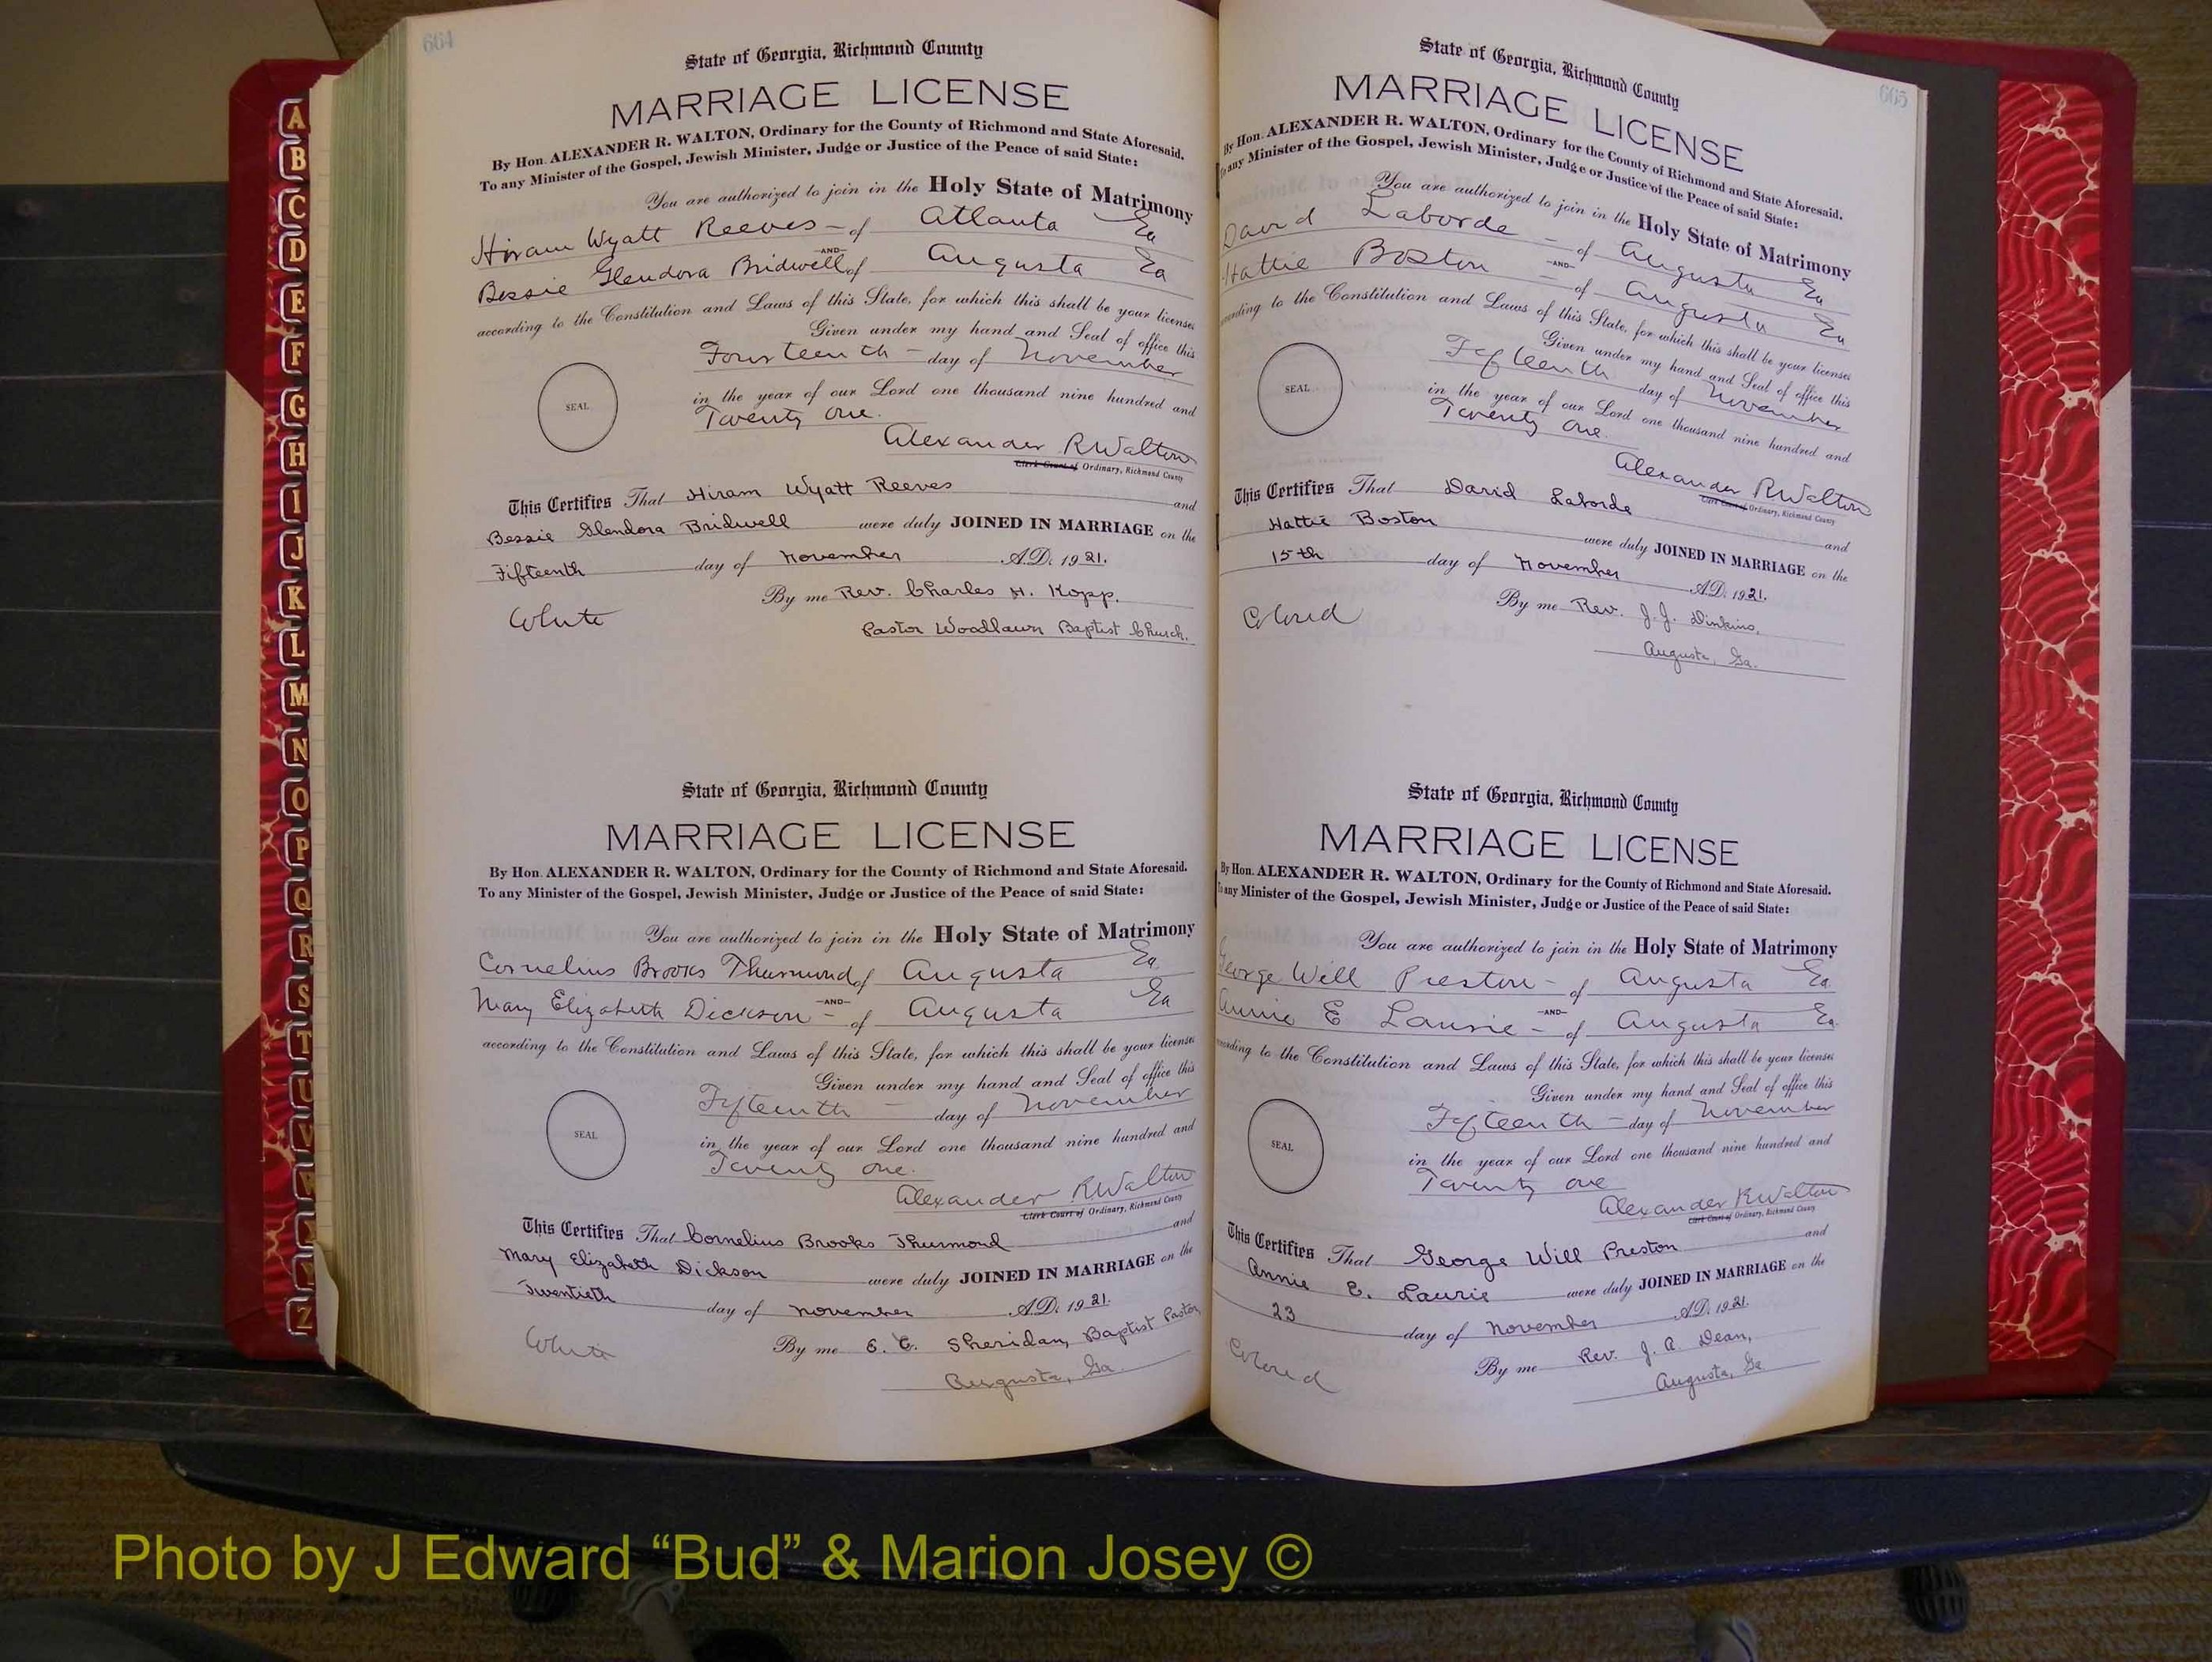 664
State of Georgia, Richmond County
MARRIAGE LICENSE
By Hon. ALEXANDER R. WALTON, Ordinary for the County of Richmond and State Aforesaid.
To any Minister of the Gospel, Jewish Minister, Judge or Justice of the Peace of said State:
You are authorized to join in the Holy State of Matrimony
Hiram Wyatt Reeves - of Atlanta Ga
-AND-
Bessie Glendora Bridwell of Augusta Ga
according to the Constitution and Laws of this State, for which this shall be your license
Given under my hand and Seal of office this
Fourteenth - day of November
SEAL
in the year of our Lord one thousand nine hundred and
Twenty one.
Alexander R Walton
Clerk Court of Ordinary, Richmond County
This Certifies That Hiram Wyatt Reeves and
Bessie Glendora Bridwell were duly JOINED IN MARRIAGE on the
Fifteenth day of November A.D. 1921.
By me Rev. Charles H. Kopp.
White
Pastor Woodlawn Baptist Church.
State of Georgia, Richmond County
MARRIAGE LICENSE
By Hon. ALEXANDER R. WALTON, Ordinary for the County of Richmond and State Aforesaid.
To any Minister of the Gospel, Jewish Minister, Judge or Justice of the Peace of said State:
You are authorized to join in the Holy State of Matrimony
Cornelius Brooks Thurmond of Augusta Ga
-AND-
Mary Elizabeth Dickson - of Augusta Ga
according to the Constitution and Laws of this State, for which this shall be your license
Given under my hand and Seal of office this
Fifteenth - day of November
SEAL
in the year of our Lord one thousand nine hundred and
Twenty one.
Alexander R Walton
Clerk Court of Ordinary, Richmond County
This Certifies That Cornelius Brooks Thurmond and
Mary Elizabeth Dickson were duly JOINED IN MARRIAGE on the
Twentieth day of November A.D. 1921.
White
By me E. C. Sheridan, Baptist Pastor,
Augusta, Ga.
665
State of Georgia, Richmond County
MARRIAGE LICENSE
By Hon. ALEXANDER R. WALTON, Ordinary for the County of Richmond and State Aforesaid.
To any Minister of the Gospel, Jewish Minister, Judge or Justice of the Peace of said State:
You are authorized to join in the Holy State of Matrimony
David Laborde - of Augusta Ga
-AND-
Hattie Boston - of Augusta Ga
according to the Constitution and Laws of this State, for which this shall be your license
Given under my hand and Seal of office this
Fifteenth day of November
SEAL
in the year of our Lord one thousand nine hundred and
Twenty one.
Alexander R Walton
Clerk Court of Ordinary, Richmond County
This Certifies That David Laborde and
Hattie Boston were duly JOINED IN MARRIAGE on the
15th day of November A.D. 1921.
Colored
By me Rev. J. J. Dinkins,
Augusta, Ga.
State of Georgia, Richmond County
MARRIAGE LICENSE
By Hon. ALEXANDER R. WALTON, Ordinary for the County of Richmond and State Aforesaid.
To any Minister of the Gospel, Jewish Minister, Judge or Justice of the Peace of said State:
You are authorized to join in the Holy State of Matrimony
George Will Preston - of Augusta Ga
-AND-
Annie E Laurie - of Augusta Ga
according to the Constitution and Laws of this State, for which this shall be your license
Given under my hand and Seal of office this
Fifteenth - day of November
SEAL
in the year of our Lord one thousand nine hundred and
Twenty one
Alexander R Walton
Clerk Court of Ordinary, Richmond County
This Certifies That George Will Preston and
Annie E. Laurie were duly JOINED IN MARRIAGE on the
23 day of November A.D. 1921.
Colored
By me Rev. J. A. Dean,
Augusta, Ga.
A
B
C
D
E
F
G
H
I
J
K
L
M
N
O
P
Q
R
S
T
U
V
W
Z
Photo by J Edward “Bud” & Marion Josey ©